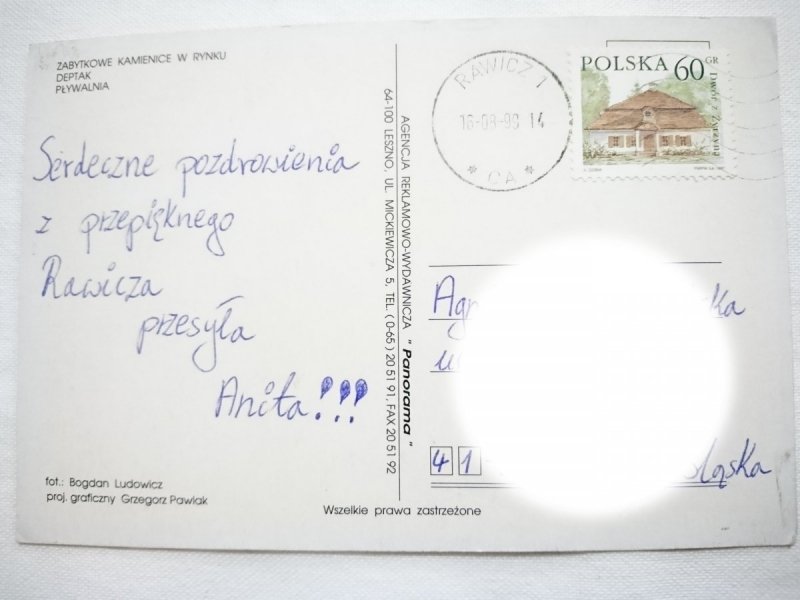 ZABYTKOWE KAMIENICE W RYNKU
DEPTAK
PŁYWALNIA
Serdeczne pozdrowienia
z przepięknego
Rawicza
przesyła
Anita!!!
fot.: Bogdan Ludowicz
proj. graficzny Grzegorz Pawlak
AGENCJA REKLAMOWO-WYDAWNICZA "Panorama"
64-100 LESZNO, UL. MICKIEWICZA 5, TEL. (0-65) 20 51 91, FAX 20 51 92
Wszelkie prawa zastrzeżone
RAWICZ 1
* CA *
POLSKA 60 GR
Dwór z Żyrzyna
41
śląska